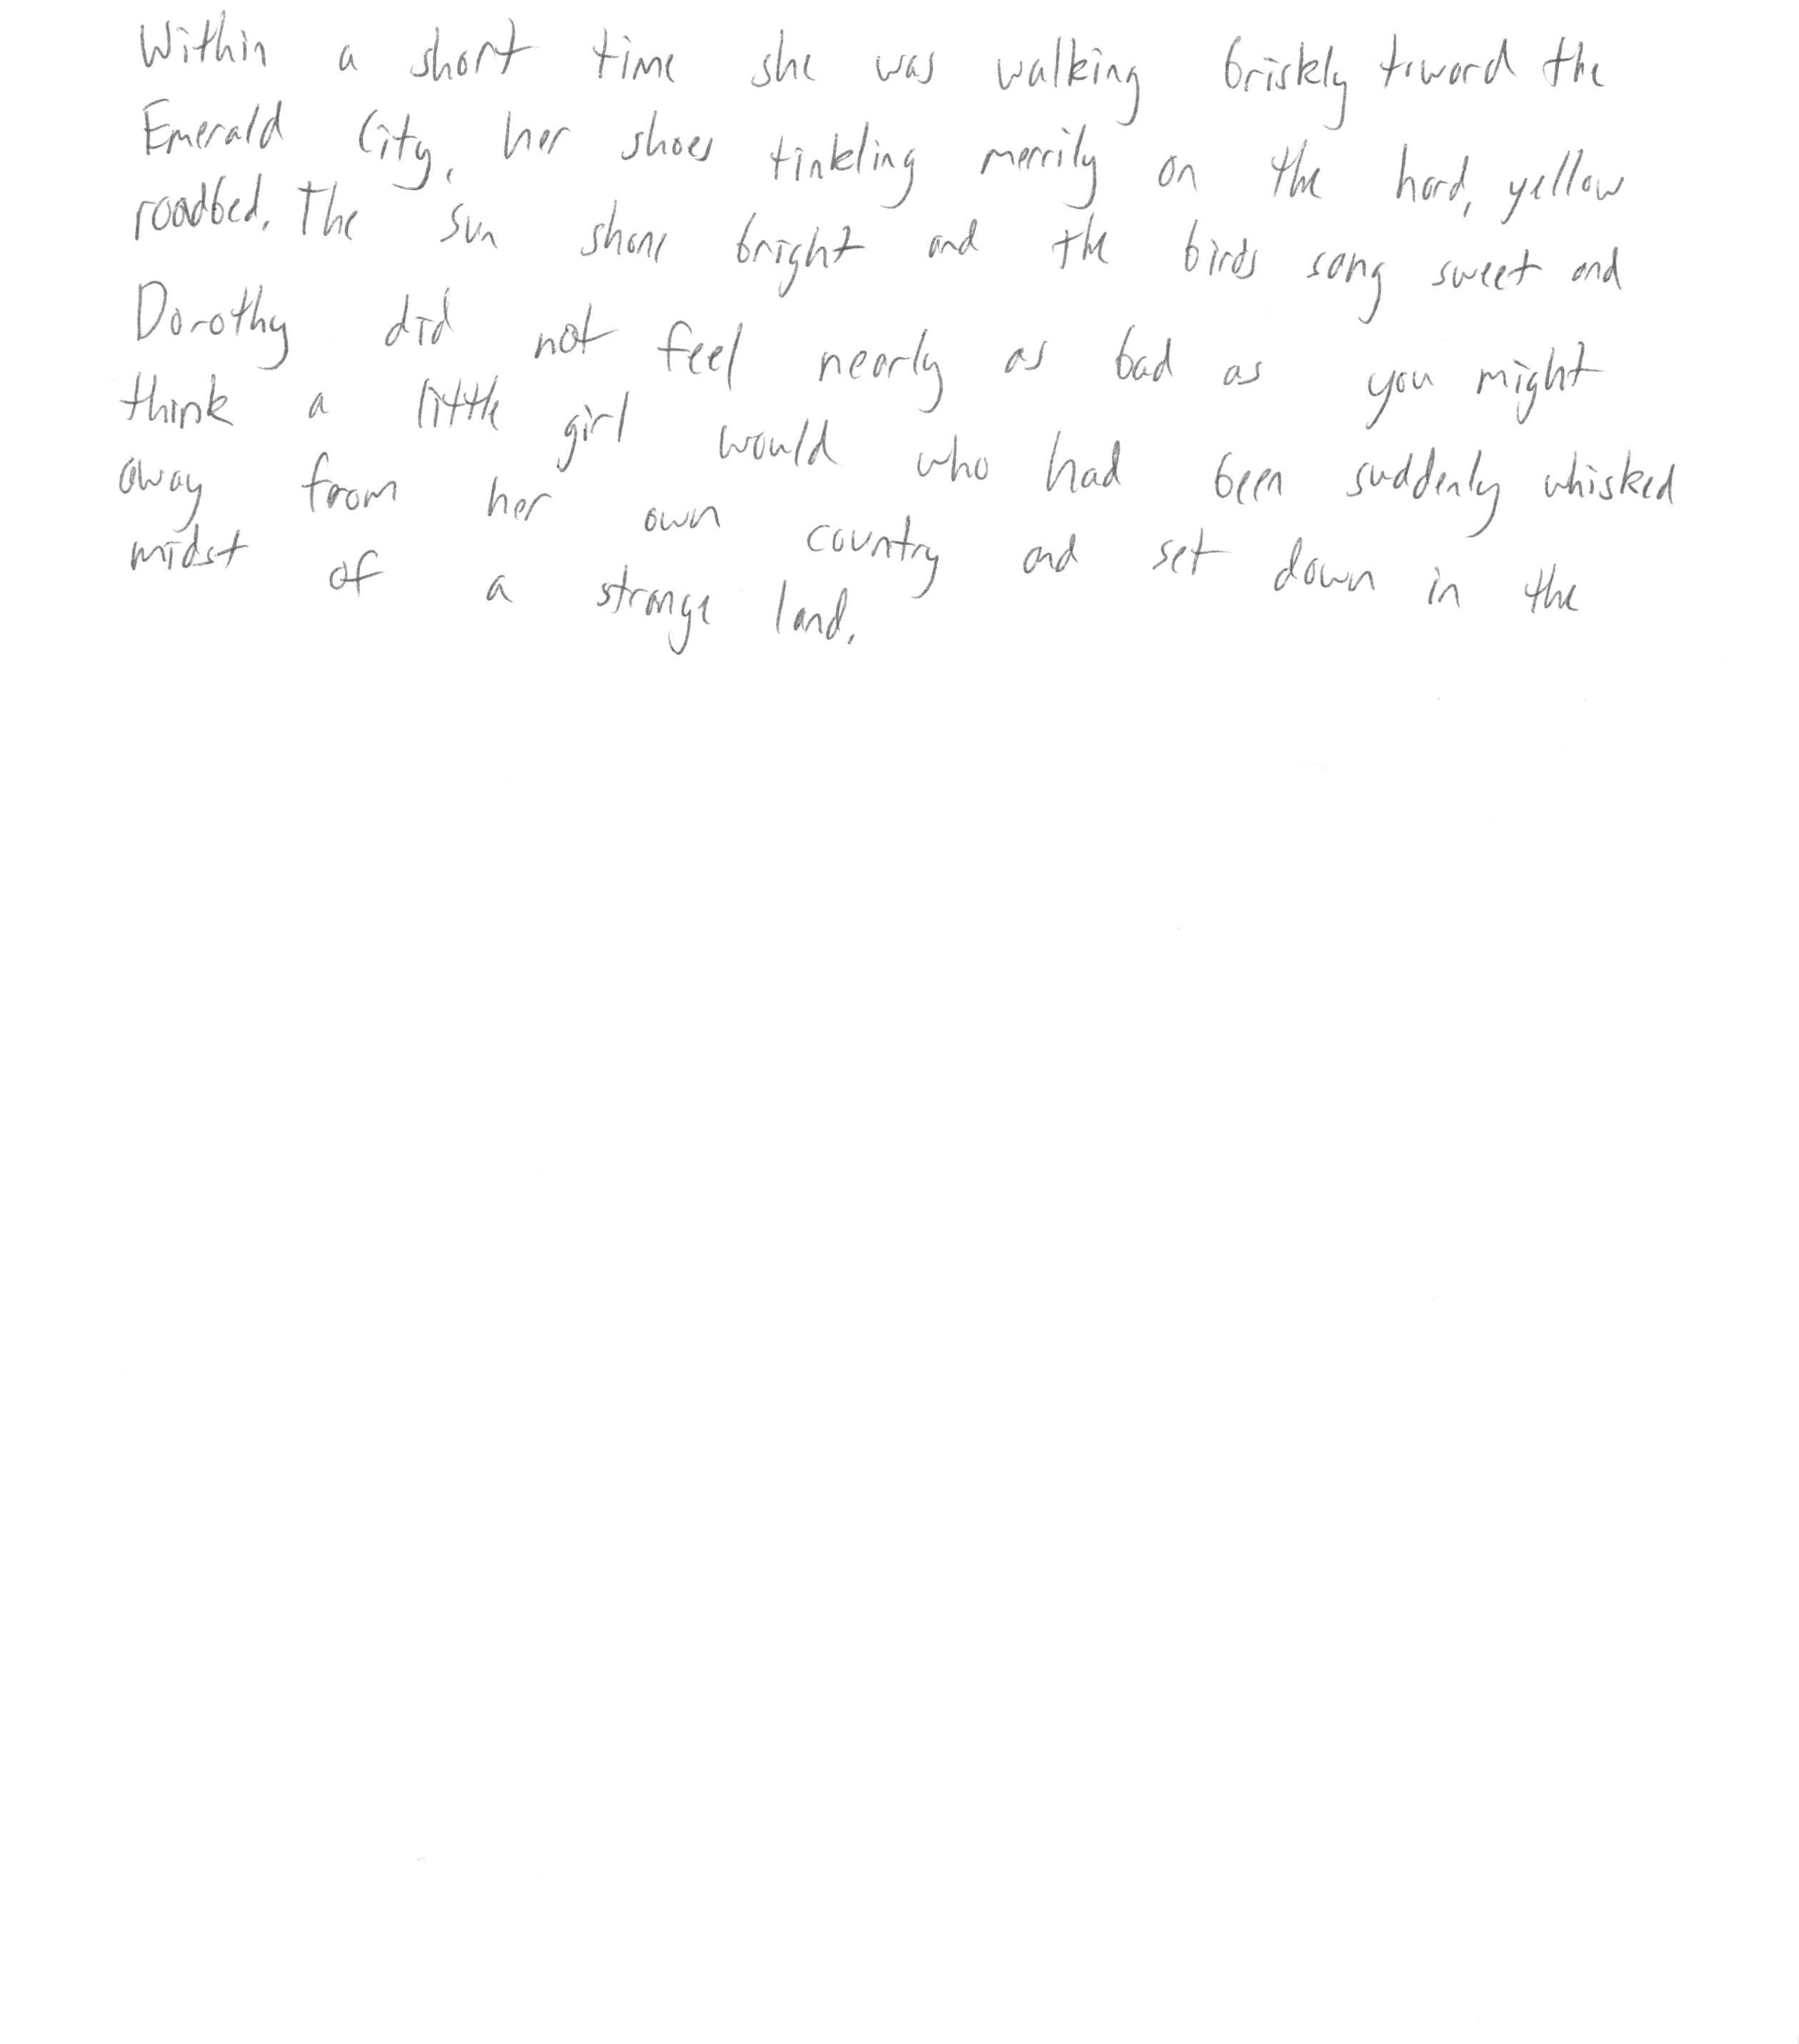 Within a short time she was walking briskly toward the
Emerald City, her shoes tinkling merrily on the hard, yellow
roadbed. The sun shone bright and the birds sang sweet and
Dorothy did not feel nearly as bad as you might
think a little girl would who had been suddenly whisked
away from her own country and set down in the
midst of a strange land.